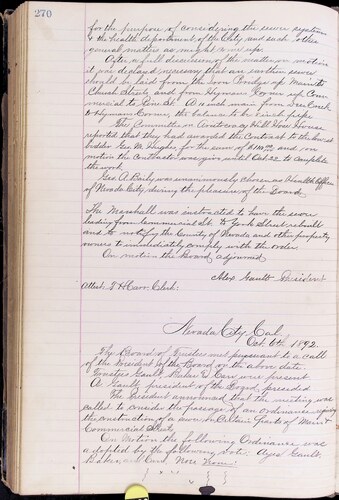 270
for the purpose of considering the sewer question
the health department of the City and such other
general matters as might come up.
After a full discussion of the matter on motion
it was declared necessary that an earthen sewer
should be laid from the Iron Conduit up Main to
Church Streets and from Hyman's Corner up Com
mercial to Pine St. A 12 inch main from Creek
to Hyman's Corner, the balance to be 8 inch pipe.
The Committee on American Hill Hose House
reported that they had awarded the Contract to the lowest
bidder Geo. M. Hughes for the sum of and on
motion the Contractor was given until Oct. 22 to complete
the work.
Geo. A. Baily was unanimously chosen as Health Officer
of Nevada City, during the pleasure of the Board.
The Marshall was instructed to have the sewer
leading from Commercial St. to York Street rebuilt
and to notify the County of Nevada and other property
owners to immediately comply with the order.
On motion the Board adjourned
Alex Gault President
Attest. T. H. Carr. Clerk.
Nevada City, Cal,
Oct. 6th, 1892.
The Board of Trustees met pursuant to a call
of the President of the Board on the above date.
Trustees Gault, Baker & Carr were present
A. Gault, president of the Board, presided
The President announced that the meeting was
called to consider the passage of an ordinance requiring
the construction of a sewer in Certain parts of Main &
Commercial Streets
On Motion the following Ordinance was
adopted by the following vote. Ayes Gault,
Baker, and Carr. Noes None.